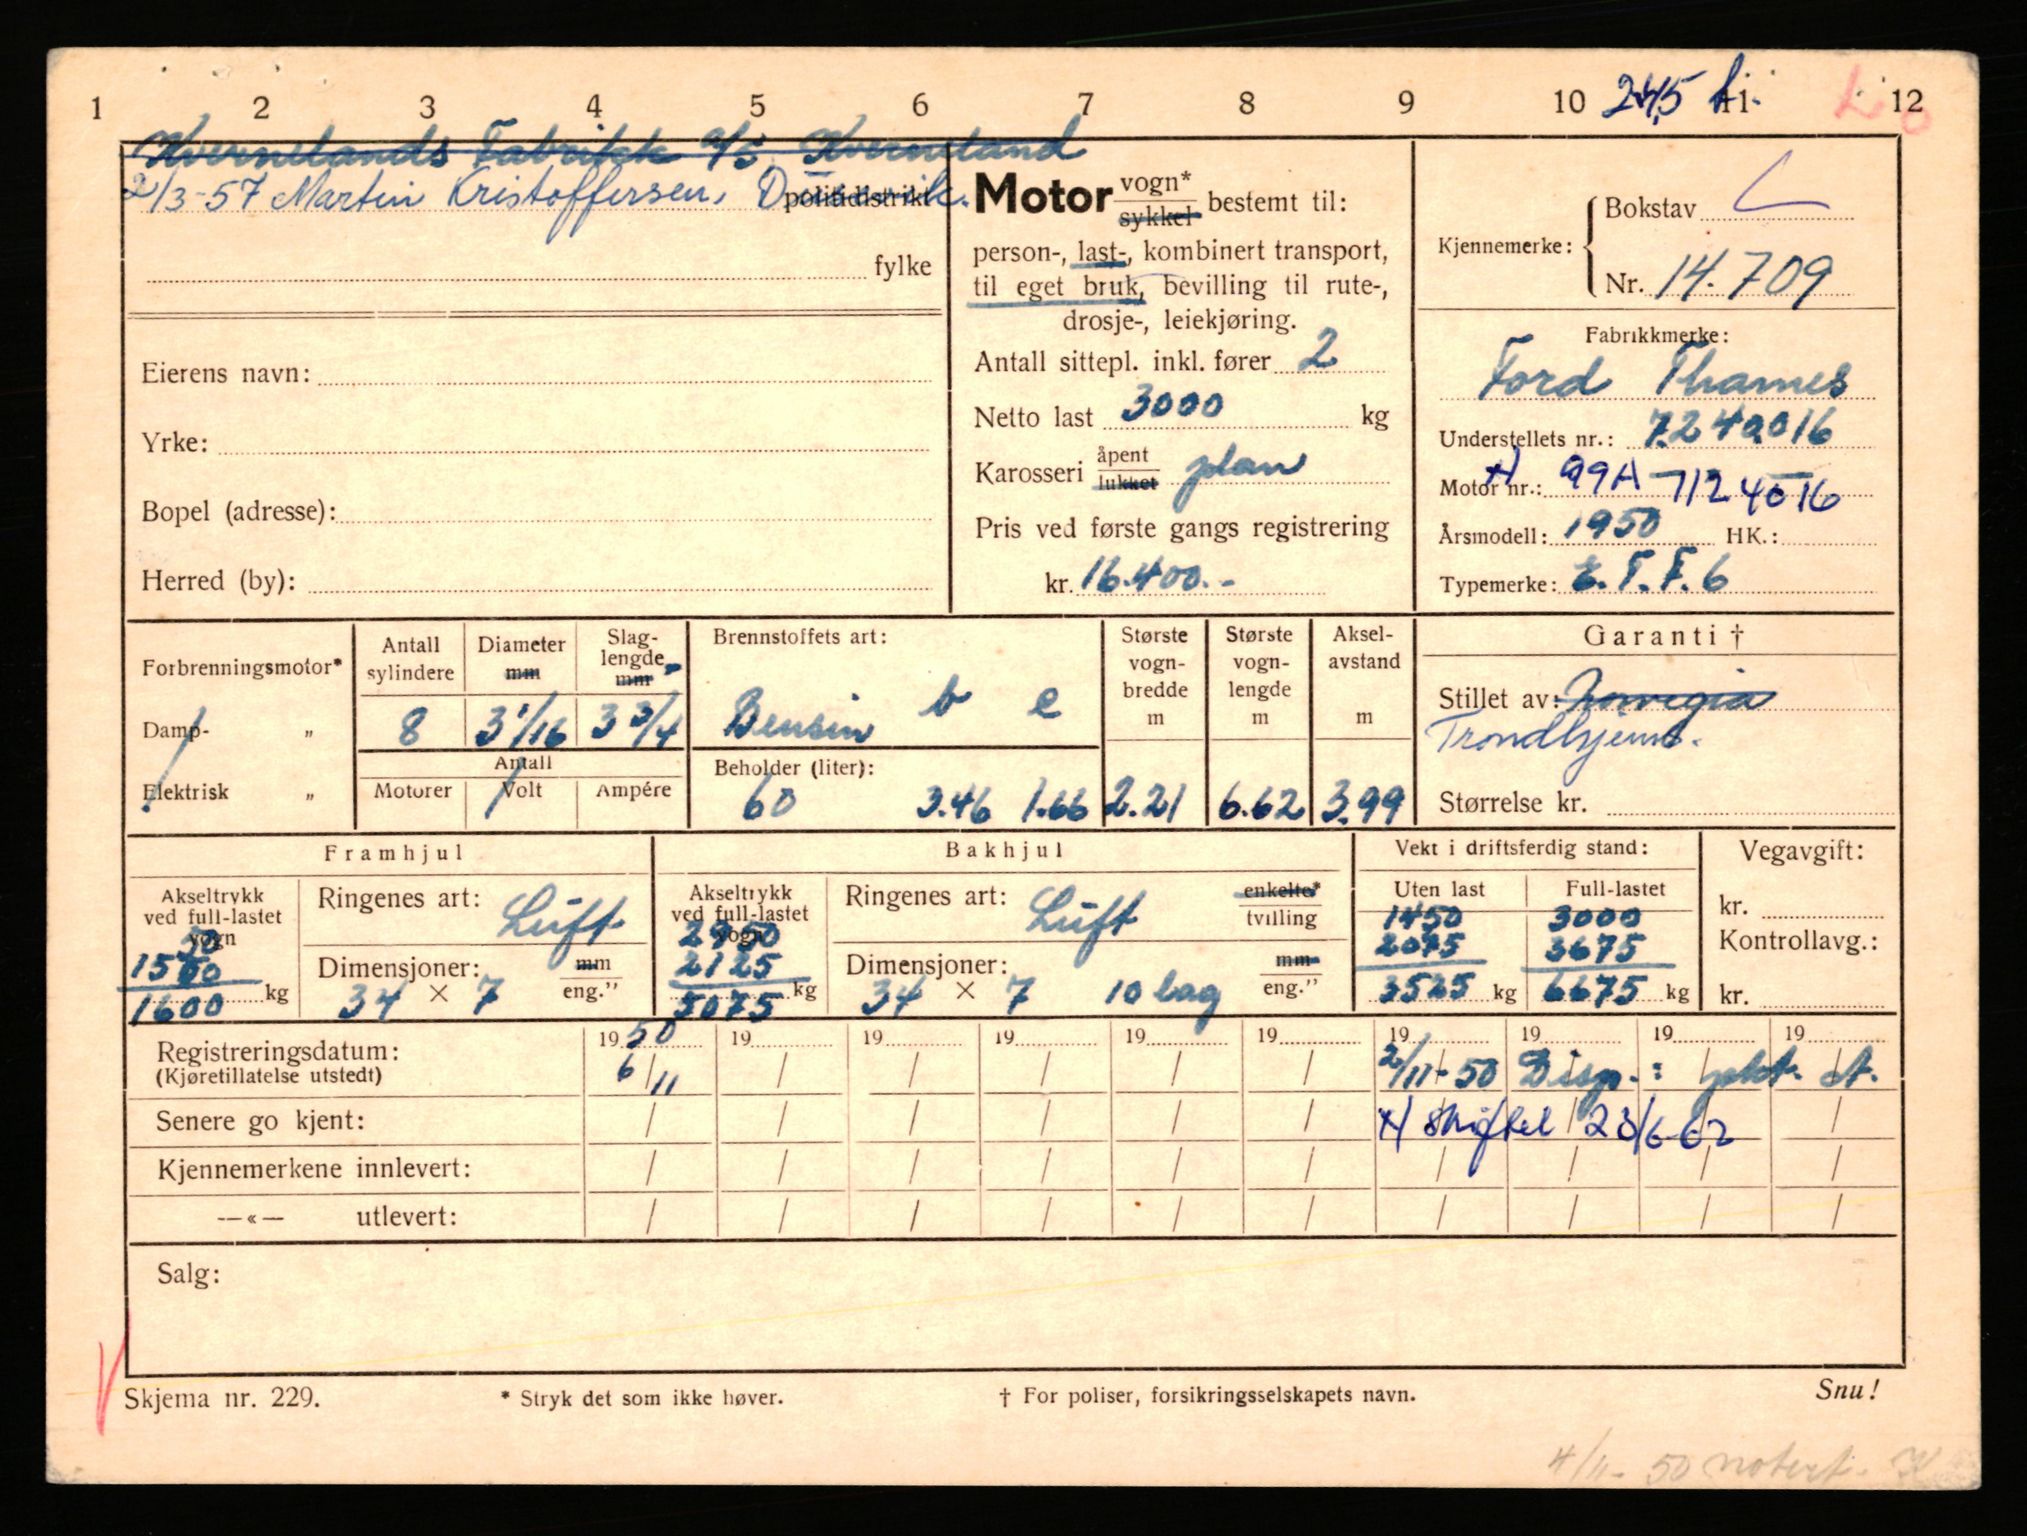 1 2 3 4 5 6 7 8 9 10 11 12
245
Kvernelands Fabrikk a/s, Kverneland
2/3-57 Martin Kristoffersen, politidistrikt
fylke
Eierens navn:
Yrke:
Bopel (adresse):
Herred (by):
Motor vogn* sykkel bestemt til:
person-, last-, kombinert transport,
til eget bruk, bevilling til rute-,
drosje-, leiekjøring.
Antall sittepl. inkl. fører 2
Netto last 3000 kg
Karosseri åpent lukket plan
Pris ved første gangs registrering
kr. 16.400.-
Kjennemerke: Bokstav L
Nr. 14.709
Fabrikkmerke:
Ford Thames
Understellets nr.: 7240016
Motor nr.: 99A-7124016
Årsmodell: 1950 HK.:
Typemerke: E.T.F.6
Forbrenningsmotor*
Damp- „
Elektrisk „
Antall sylindere Diameter mm Slag-lengde mm
8 3 1/16 3 3/4
Antall
Motorer Volt Ampére
Brennstoffets art:
Bensin b e
Beholder (liter):
60 3.46 1.66
Største vogn-bredde m
2.21
Største vogn-lengde m
6.62
Aksel-avstand m
3.99
Garanti †
Stillet av: Norvegia
Trondhjems.
Størrelse kr.
Framhjul
Akseltrykk ved full-lastet vogn
50
1550
1600 kg
Ringenes art: Luft
Dimensjoner: mm
34 × 7 eng."
Bakhjul
Akseltrykk ved full-lastet vogn
2950
2125
5075 kg
Ringenes art: Luft enkelte* tvilling
Dimensjoner: mm
34 × 7 10 lag eng."
Vekt i driftsferdig stand:
Uten last Full-lastet
1450 3000
2075 3675
3525 kg 6675 kg
Vegavgift:
kr.
Kontrollavg.:
kr.
Registreringsdatum: 1950 19 19 19 19 19 19 19 19 19
(Kjøretillatelse utstedt) 6/11 2/11-50 Disp.: pkt. d.
Senere go kjent: skiftet 23/6-62
Kjennemerkene innlevert:
—«— utlevert:
Salg:
Skjema nr. 229. * Stryk det som ikke høver. † For poliser, forsikringsselskapets navn. Snu!
4/11-50 notert.